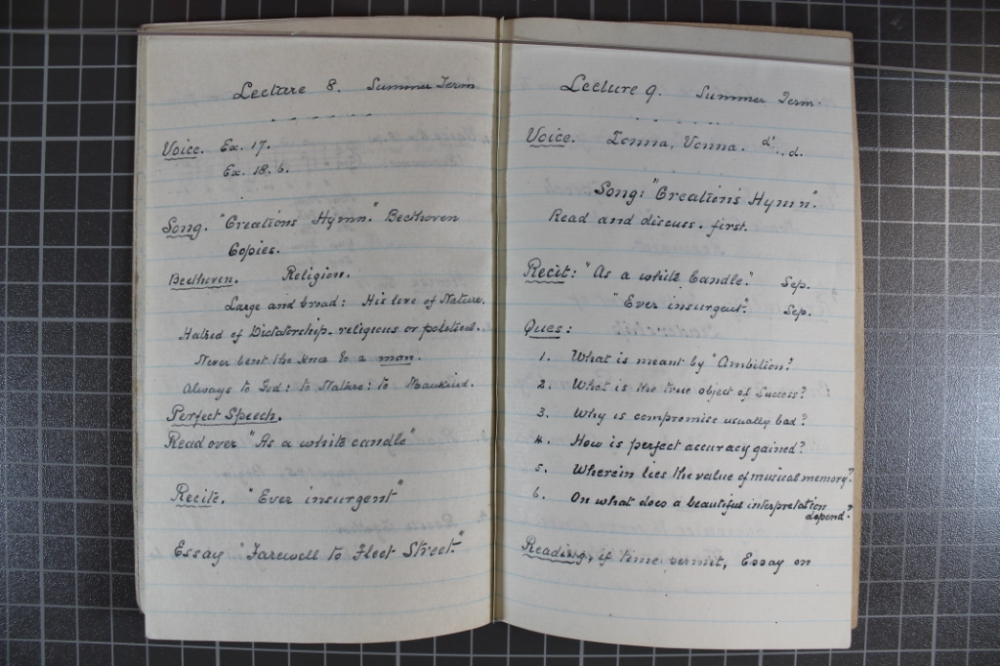 Lecture 8. Summer Term
Voice. Ex. 17.
Ex. 18. 6.
Song. "Creation's Hymn." Beethoven
Copies.
Beethoven. Religion.
Large and broad: His love of Nature.
Hatred of Dictatorship. religious or political.
Never bent the knee to a man.
Always to God: to Nature: to Mankind.
Perfect Speech.
Read over "As a white candle"
Recite. "Ever insurgent"
Essay "Farewell to Fleet Street."
Lecture 9. Summer Term.
Voice. Ionna, Vonna. d'..d.
Song: "Creation's Hymn".
Read and discuss. first.
Recit: "As a white Candle". Sep.
"Ever insurgent". Sep.
Ques:
1. What is meant by "Ambition?
2. What is the true object of Success?
3. Why is compromise usually bad?
4. How is perfect accuracy gained?
5. Wherein lies the value of musical memory?
6. On what does a beautiful interpretation
depend?
Reading, if time permit, Essay on